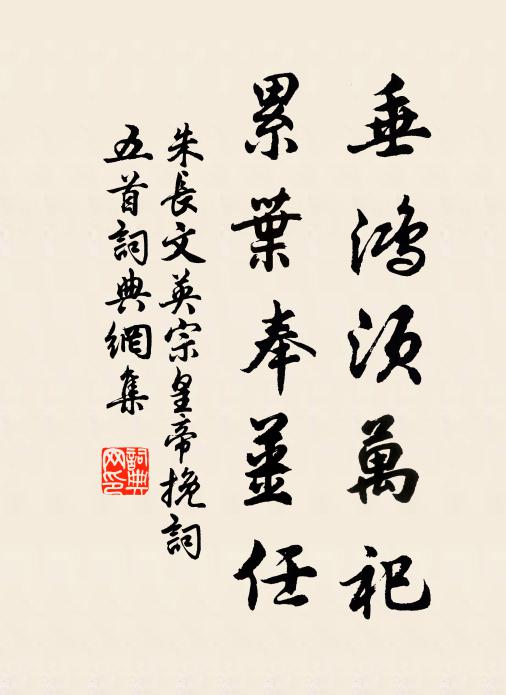 垂鴻須萬祀
累葉奉薑任
朱長文英宗皇帝挽詞
五首詞典網集
詞典
网印